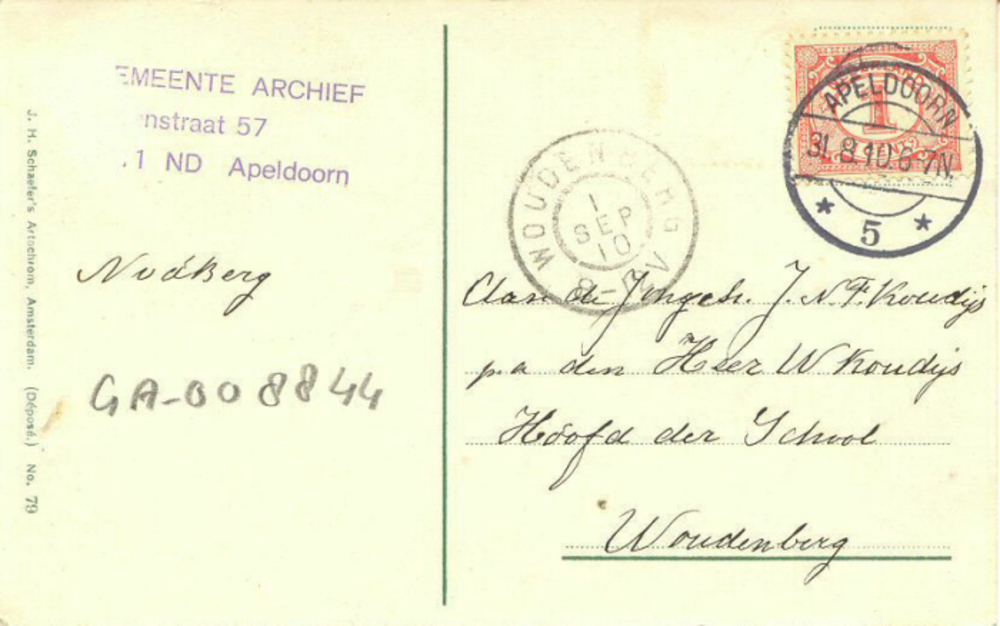 EMEENTE ARCHIEF
nstraat 57
1 ND Apeldoorn
J. H. Schaefer's Artochrom, Amsterdam. (Déposé.) No. 79
NvdBerg
GA-008844
WOUDENBERG
1
SEP
10
8-
V
1
APELDOORN
31.8.10.6-7N.
* 5 *
Aan de Jongeh. J. N. F. Koudijs
p.a den Heer W Koudijs
Hoofd der School
Woudenberg